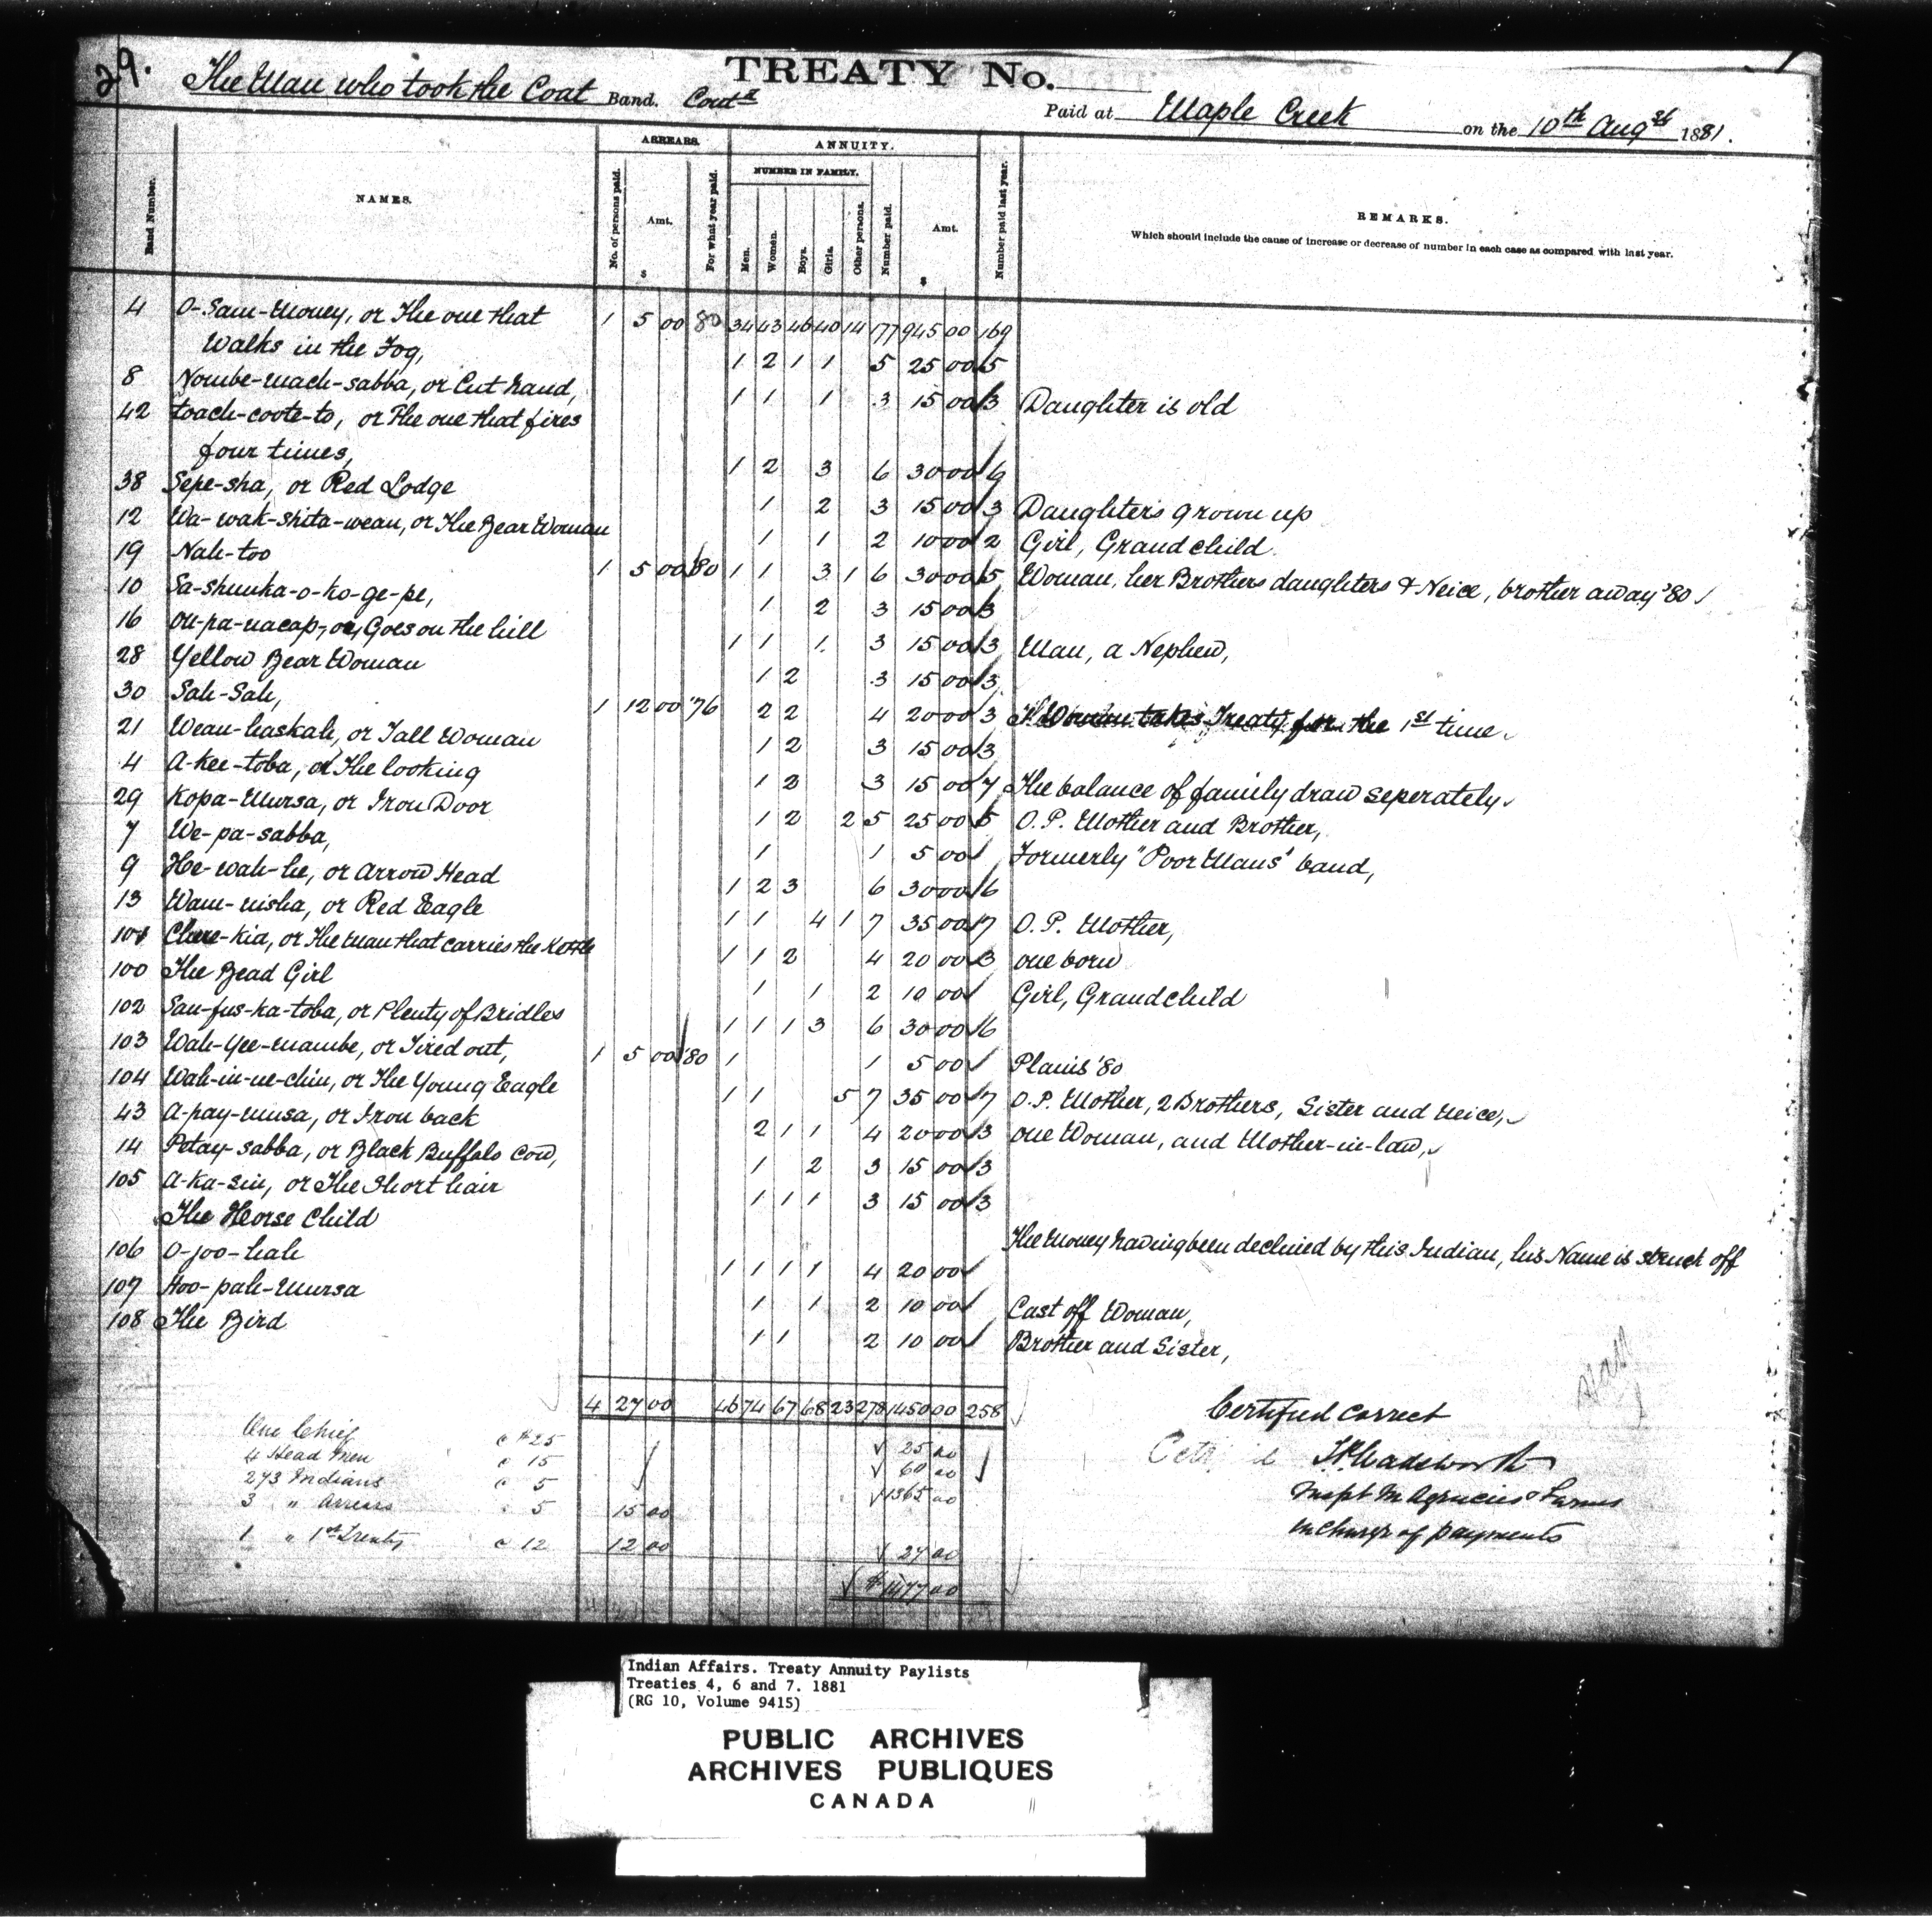 29.
TREATY No.
The Man who took the Coat Band. Contd
Paid at Maple Creek on the 10th Augst 1881.
ARREARS. ANNUITY.
NUMBER IN FAMILY.
Band Number. NAMES. No. of persons paid. Amt. $ For what year paid. Men. Women. Boys. Girls. Other persons. Number paid. Amt. $ Number paid last year. REMARKS.
Which should include the cause of increase or decrease of number in each case as compared with last year.
1 5 00 80 34 43 46 40 14 177 945 00 169
4 O-Sam-Money, or The one that
Walks in the Fog, 1 2 1 1 5 25 00 5
8 Nombe-mach-sabba, or Cut hand, 1 1 1 3 15 00 3 Daughter is old
42 toach-coote-to, or The one that fires
four times, 1 2 3 6 30 00 6
38 Sepe-sha, or Red Lodge 1 2 3 15 00 3 Daughters grown up
12 Wa-wak-shita-wean, or The Bear Woman 1 1 2 10 00 2 Girl, Grand child
19 Nah-too 1 5 00 80 1 1 3 1 6 30 00 5 Woman, her Brothers daughters & Neice, brother away '80
10 Sa-shunka-o-ko-ge-pe, 1 2 3 15 00 3
16 Ou-pa-nacap, or, Goes on the hill 1 1 1 3 15 00 3 Man, a Nephew,
28 Yellow Bear Woman 1 2 3 15 00 3
30 Sah-Sah, 1 12 00 '76 2 2 4 20 00 3 Woman takes Treaty for the 1st time
21 Wean-haskah, or Tall Woman 1 2 3 15 00 3
4 A-kee-toba, or The looking 1 2 3 15 00 7 The balance of family draw seperately
29 Kopa-Mursa, or Iron Door 1 2 2 5 25 00 5 O.P. Mother and Brother,
7 We-pa-sabba, 1 1 5 00 Formerly "Poor Mans" band,
9 He-wah-he, or Arrow Head 1 2 3 6 30 00 6
13 Wam-nisha, or Red Eagle 1 1 4 1 7 35 00 7 O.P. Mother,
101 Chere-kid, or The man that carries the Kettle 1 1 2 4 20 00 3 one born
100 The Bead Girl 1 1 2 10 00 Girl, Grandchild
102 San-fus-ka-toba, or Plenty of Bridles 1 1 1 3 6 30 00 6
103 Wah-yee-mambe, or Tired out, 1 5 00 '80 1 1 5 00 Plains '80
104 Wah-in-ne-chin, or The Young Eagle 1 1 5 7 35 00 7 O.P. Mother, 2 Brothers, Sister and neice,
43 A-pay-musa, or Iron back 2 1 1 4 20 00 3 one Woman, and Mother-in-law,
14 Petay-sabba, or Black Buffalo Cow, 1 2 3 15 00 3
105 A-ka-sin, or The Short hair 1 1 1 3 15 00 3
The Horse Child The money having been declined by this Indian, his Name is struck off
106 O-joo-hah 1 1 1 1 4 20 00
107 Hoo-pah-Mursa 1 1 2 10 00 Cast off Woman,
108 The Bird 1 1 2 10 00 Brother and Sister,
4 27 00 46 74 67 68 23 278 1450 00 258
Certified correct
One Chief @ $25 25 00
4 Head Men @ 15 60 00
273 Indians @ 5 1365 00
3 " Arrears @ 5 15 00
1 " 1st Treaty @ 12 12 00 27 00
$1477 00
T.P. Wadsworth
Inspt In Agencies & Farms
in charge of payments
Indian Affairs. Treaty Annuity Paylists
Treaties 4, 6 and 7. 1881
(RG 10, Volume 9415)
PUBLIC ARCHIVES
ARCHIVES PUBLIQUES
CANADA